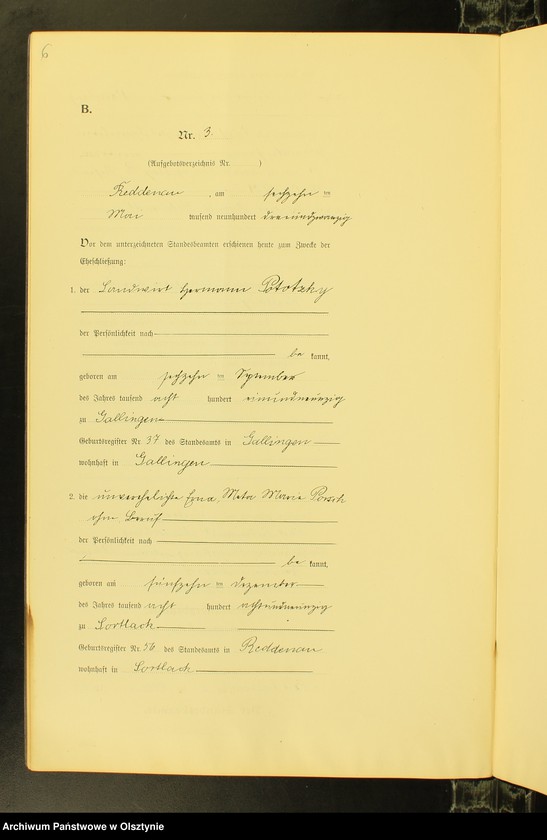 6
B.
Nr. 3.
(Aufgebotsverzeichnis Nr. )
Reddenau, am sechzehn ten
Mai tausend neunhundert dreiundzwanzig
Vor dem unterzeichneten Standesbeamten erschienen heute zum Zwecke der
Eheschließung:
1. der Landwirt Hermann Pototzky
der Persönlichkeit nach
be kannt,
geboren am sechzehn ten September
des Jahres tausend acht hundert einundneunzig
zu Gallingen
Geburtsregister Nr. 37 des Standesamts in Gallingen
wohnhaft in Gallingen
2. die unverehelichte Erna Meta Maria Porsch
ohne Beruf
der Persönlichkeit nach
be kannt,
geboren am fünfzehn ten Dezember
des Jahres tausend acht hundert achtundneunzig
zu Sortlack
Geburtsregister Nr. 56 des Standesamts in Reddenau
wohnhaft in Sortlack
Archiwum Państwowe w Olsztynie